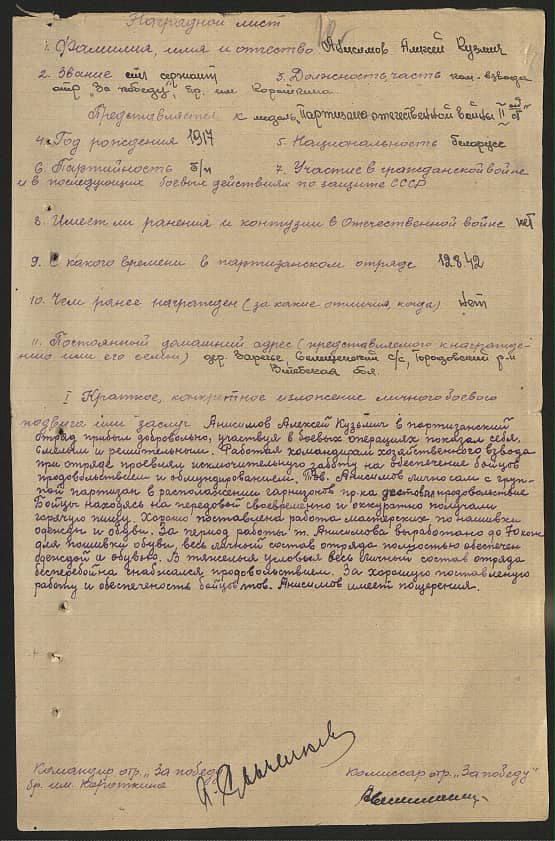 Наградной лист
1. Фамилия, имя и отчество Анисимов Алексей Кузьмич
2. Звание ст. сержант 3. Должность, часть ком. взвода
отр. „За победу", бр. им. Короткина.
Представляется к медаль „Партизана отечественной войны II ой ст"
4. Год рождения 1917 5. Национальность белорус
6. Партийность б/п 7. Участие в гражданской войне
и в последующих боевых действиях по защите СССР
8. Имеет ли ранения и контузии в Отечественной войне нет
9. С какого времени в партизанском отряде 12.8.42
10. Чем ранее награжден (за какие отличия, когда) Нет
11. Постоянный домашний адрес (представляемого к награжде-
нию или его семьи) дер. Заречье, с/с, Городокский р-н
Витебская обл.
I Краткое, конкретное изложение личного боевого
подвига или заслуг Анисимов Алексей Кузьмич в партизанский
отряд прибыл добровольно, участвуя в боевых операциях показал себя,
смелым и решительным. Работая командирам хозяйственного взвода
при отряде проевлял исключительную заботу на обеспечение бойцов
продовольствием и обмундированием. Тов. Анисимов лично сам с груп-
пой партизан в расположении гарнизонов пр-ка доставал продовольствие
Бойцы находясь на передовой своевременно и оккуратно получали
горячую пищу. Хорошо поставлена работа мастерских по пашивки
одежды и обуви. За период работы т. Анисимова выработано до 70 кож
для пошивки обуви, весь личный состав отряда полностью обеспечен
одеждой и обувью. В тяжелых условия весь личный состав отряда
бесперебойна снабжался продовольствием. За хорошую поставленую
работу и обеспеченость бойцов тов. Анисимов имеет поощерения.
Командир отр. „За победу" Комиссар отр. „За победу"
бр. им. Короткина